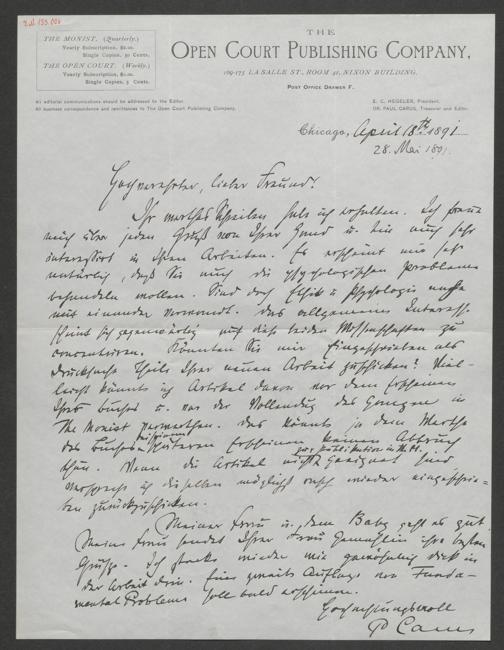 THE MONIST. (Quarterly.)
Yearly Subscription, $2.00.
Single Copies, 50 Cents.
THE OPEN COURT. (Weekly.)
Yearly Subscription, $2.00.
Single Copies, 5 Cents.
THE
OPEN COURT PUBLISHING COMPANY,
169-175 LA SALLE ST., ROOM 41, NIXON BUILDING.
POST OFFICE DRAWER F.
All editorial communications should be addressed to the Editor.
All business correspondence and remittances to The Open Court Publishing Company.
E. C. HEGELER, President.
DR. PAUL CARUS, Treasurer and Editor.
Chicago, April 18th 1891
28. Mai 1891.
Hochverehrter, lieber Freund!
Ihr werthes Schreiben habe ich erhalten. Ich freue
mich über jeden Gruß von Ihrer Hand u. bin auch sehr
interessirt in Ihren Arbeiten. Es erscheint mir sehr
natürlich, daß Sie auch die psychologischen Probleme
behandeln wollen. Sind doch Ethik u Psychologie
mit einander verwandt. Das allgemeine Interesse
scheint sich gegenwärtig auf diese beiden Wissenschaften zu
concentriren. Könnten Sie mir Eingeschrieben als
Drucksache Theile Ihrer neuen Arbeit zuschicken? Viel-
leicht könnte ich Artikel davon vor dem Erscheinen
Ihres Buches u. vor der Vollendung des Ganzen in
The Monist verwerthen. Das könnte ja dem Werthe
des Buches späteren Erscheinen keinen Abbruch
thun. Wenn die Artikel nicht zur Publikation in Geeignet sind
verspreche ich dieselben möglichst rasch wieder eingeschrie-
ben zurückzuschicken.
Meiner Frau u. dem Baby geht es gut
Meine Frau sendet Ihrer Frau Gemahlin ihre besten
Grüße. Ich stecke wieder wie gewöhnlich dick in
der Arbeit drin. Eine zweite Auflage von Funda-
mental Problems soll bald erscheinen.
Hochachtungsvoll
P Carus